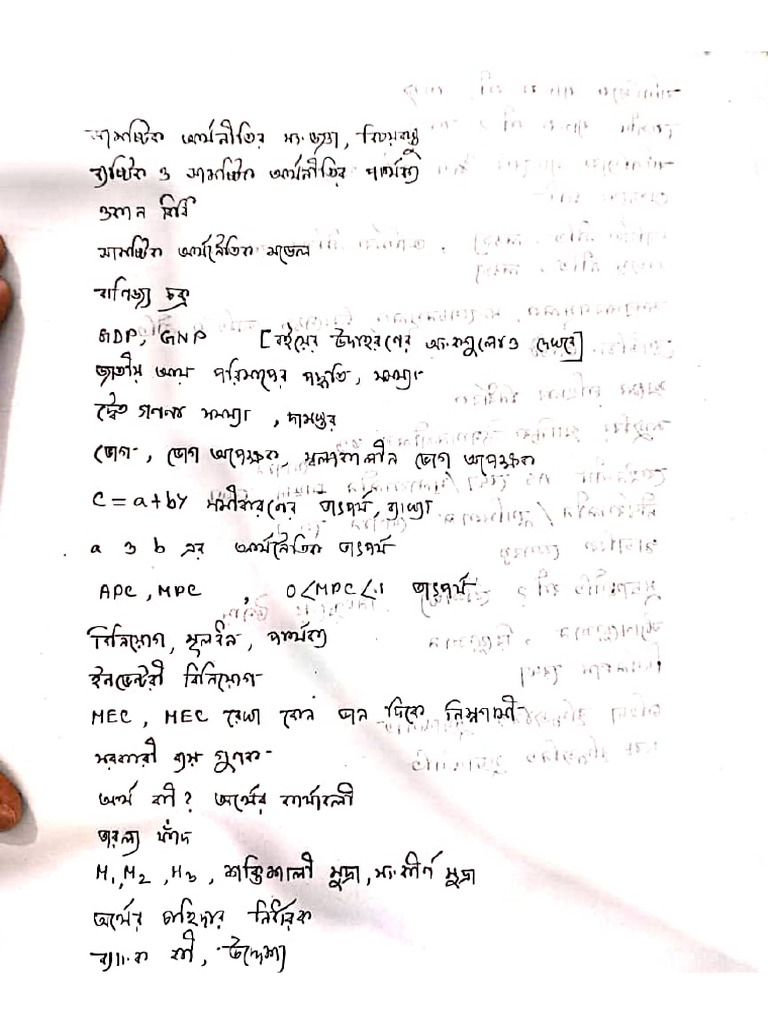 সামষ্টিক অর্থনীতির সংজ্ঞা, বিষয়বস্তু
ব্যষ্টিক ও সামষ্টিক অর্থনীতির পার্থক্য
ওকান বিধি
সামষ্টিক অর্থনৈতিক মডেল
বাণিজ্য চক্র
GDP, GNP [বইয়ের উদাহরণের অংকগুলোও দেখবে]
জাতীয় আয় পরিমাপের পদ্ধতি, সমস্যা
দ্বৈত গণনা সমস্যা, দামস্তর
ভোগ, ভোগ অপেক্ষক, স্বল্পকালীন ভোগ অপেক্ষক
C = a + by সমীকরণের তাৎপর্য, ব্যাখ্যা
a ও b এর অর্থনৈতিক তাৎপর্য
APC, MPC, 0<MPC<1 তাৎপর্য
বিনিয়োগ, মূলধন, পার্থক্য
ইনভেন্টরী বিনিয়োগ
MEC, MEC রেখা কেন ডান দিকে নিম্নগামী
সরকারী ব্যয় গুণক
অর্থ কী? অর্থের কার্যাবলী
তারল্য ফাঁদ
M1, M2, M3, শক্তিশালী মুদ্রা, সংকীর্ণ মুদ্রা
অর্থের চাহিদার নির্ধারক
ব্যাংক কী, উদ্দেশ্য